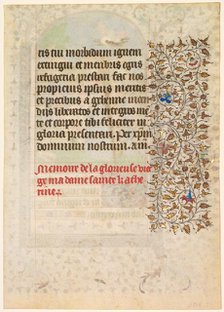 cis tui morbidum igneum
extingui et membris egris
refugeria prestari fac nos
propicius ipsius meritis
et precibus a gehenne incen
dijs liberatos et integros men
te et corpore tibi feliciter in
gloria presentari. Per xp̃m
dominum nostrum. am.
Memoire de la glorieuse vier
ge ma dame sainte kathe
rine